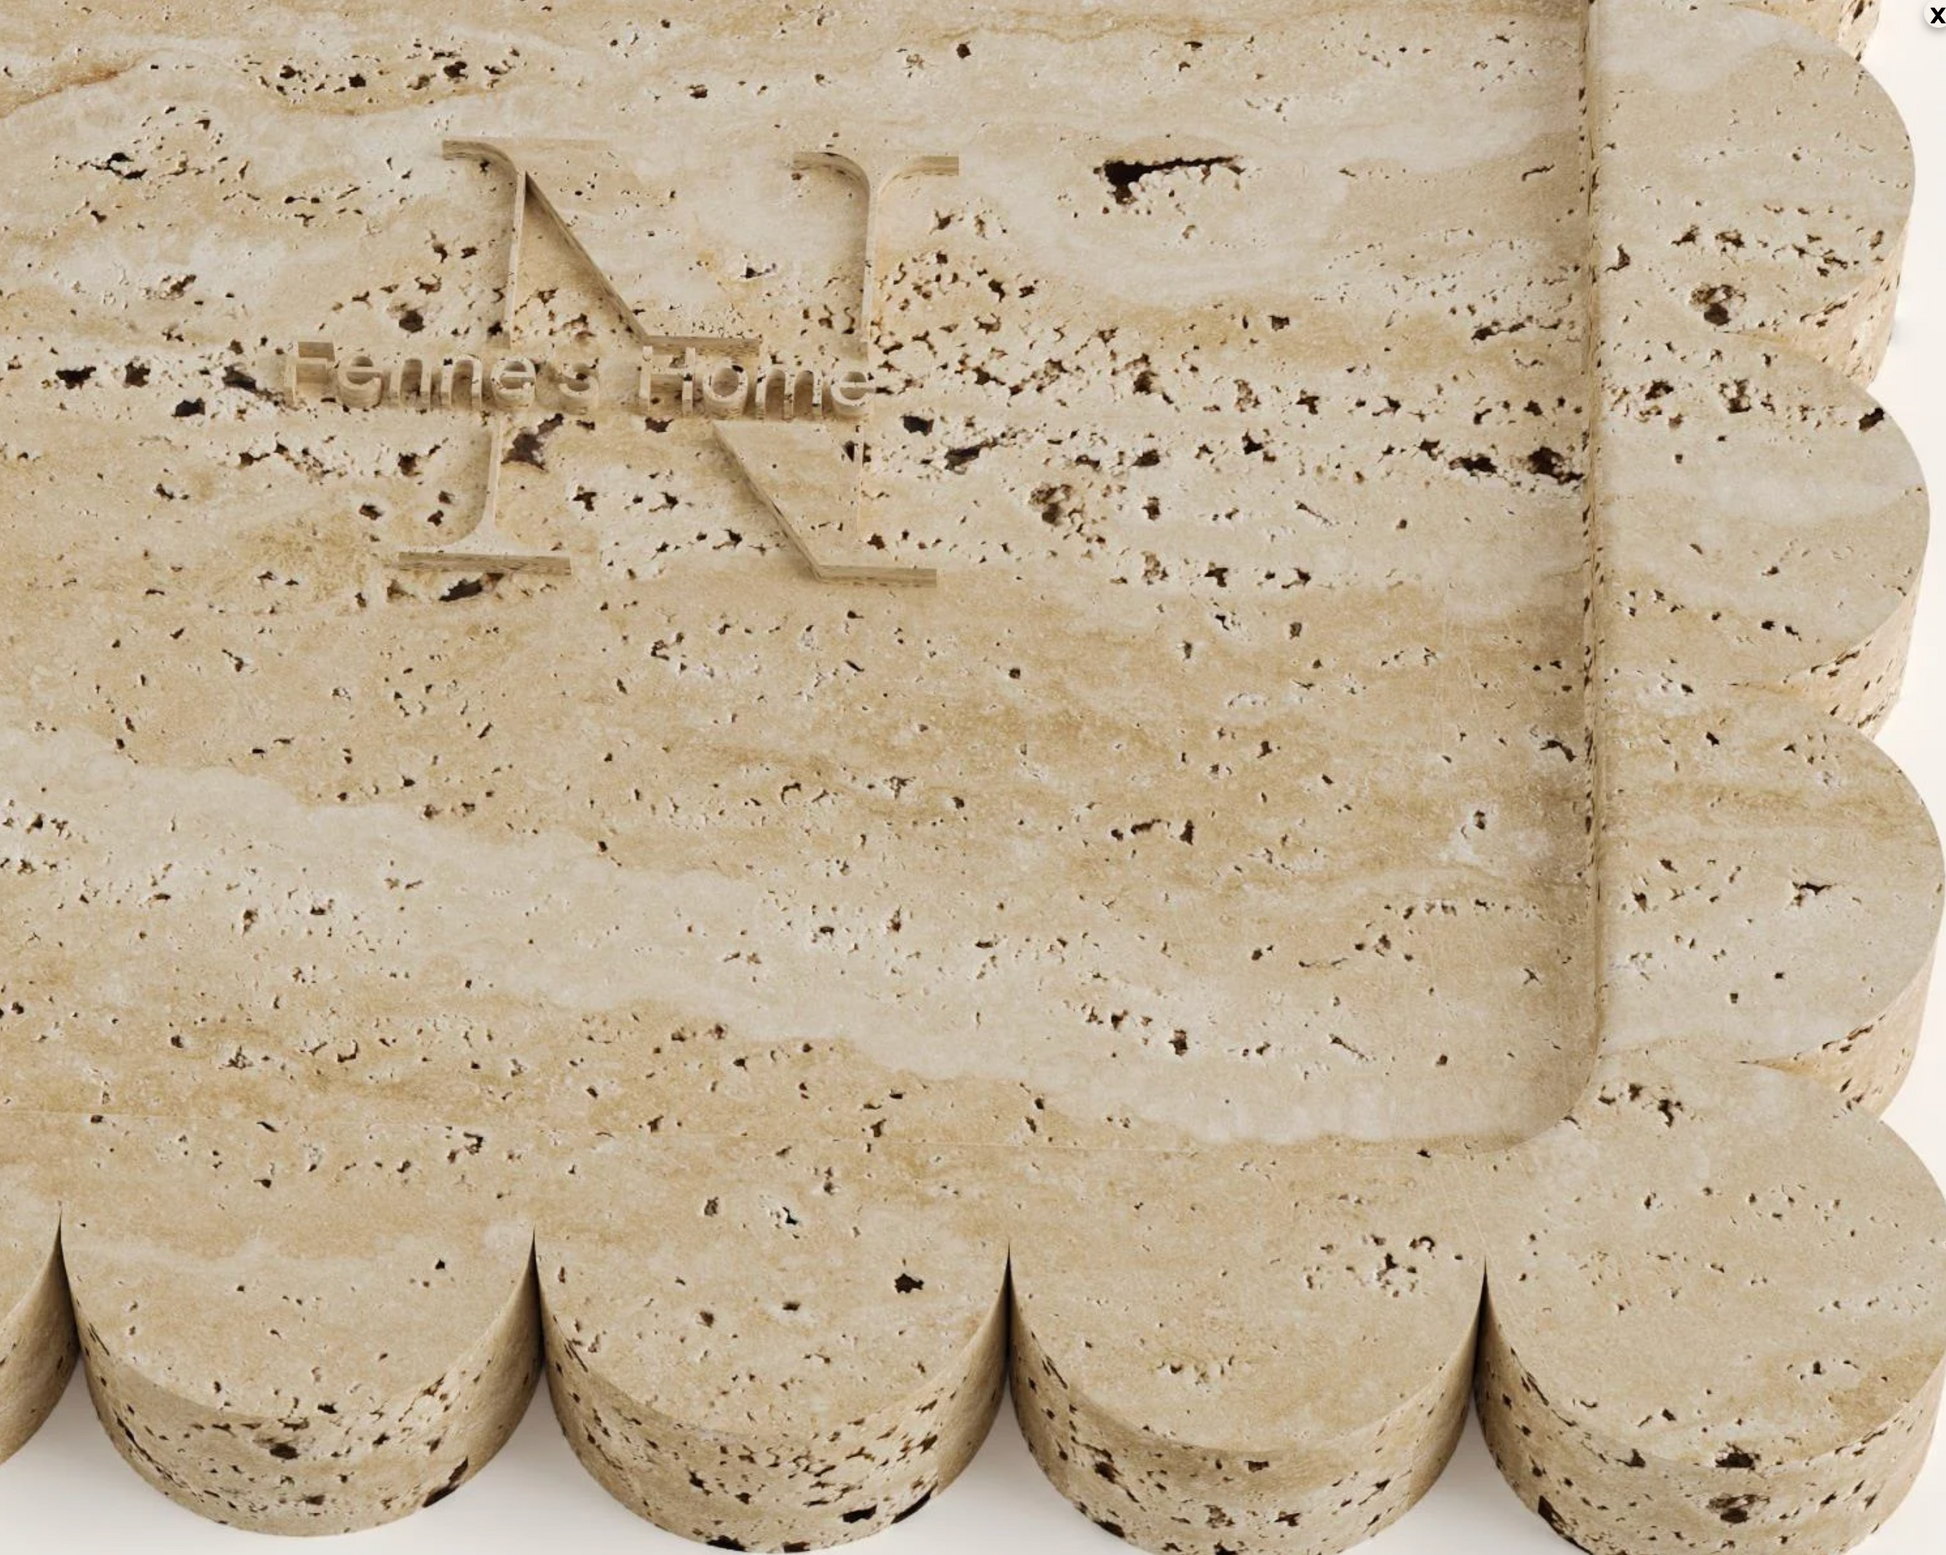 N
Fenne's Home
x